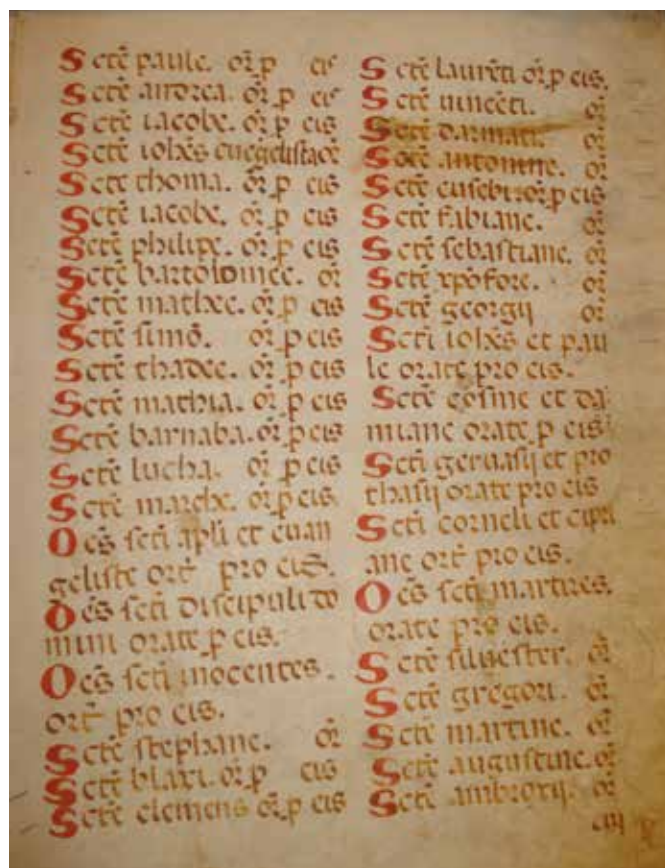 Sctē paule. or̄ p eis
Sctē andrea. or̄ p eis
Sctē iacobe. or̄ p eis
Sctē ioħes euāgelista or̄
Sctē thoma. or̄ p eis
Sctē iacobe. or̄ p eis
Sctē philipe. or̄ p eis
Sctē bartolomee. or̄
Sctē mathee. or̄ p eis
Sctē simō. or̄ p eis
Sctē thadee. or̄ p eis
Sctē mathia. or̄ p eis
Sctē barnaba. or̄ p eis
Sctē lucha. or̄ p eis
Sctē marche. or̄ p eis
Oēs scti apli et euan
geliste ort̄ pro eis.
Oēs scti discipuli do
mini orate p eis.
Oēs scti inocentes.
ort̄ pro eis.
Sctē stephane. or̄
Sctē blaxi. or̄ p eis
Sctē clemens or̄ p eis
Sctē laurēti or̄ p eis.
Sctē uincēti. or̄
Sctē or̄
Sctē antonine. or̄
Sctē eusebi. or̄ p eis
Sctē fabiane. or̄
Sctē sebastiane. or̄
Sctē xpōfore. or̄
Sctē georgij or̄
Scti ioħes et pau
le orate pro eis.
Sctē cosme et da
miane orate p eis
Scti geruasij et pro
thasij orate pro eis
Scti corneli et cipri
ane ort̄ pro eis.
Oēs scti martires.
orate pro eis.
Sctē siluester. or̄
Sctē gregori. or̄
Sctē martine. or̄
Sctē augustine. or̄
Sctē ambroxij. or̄